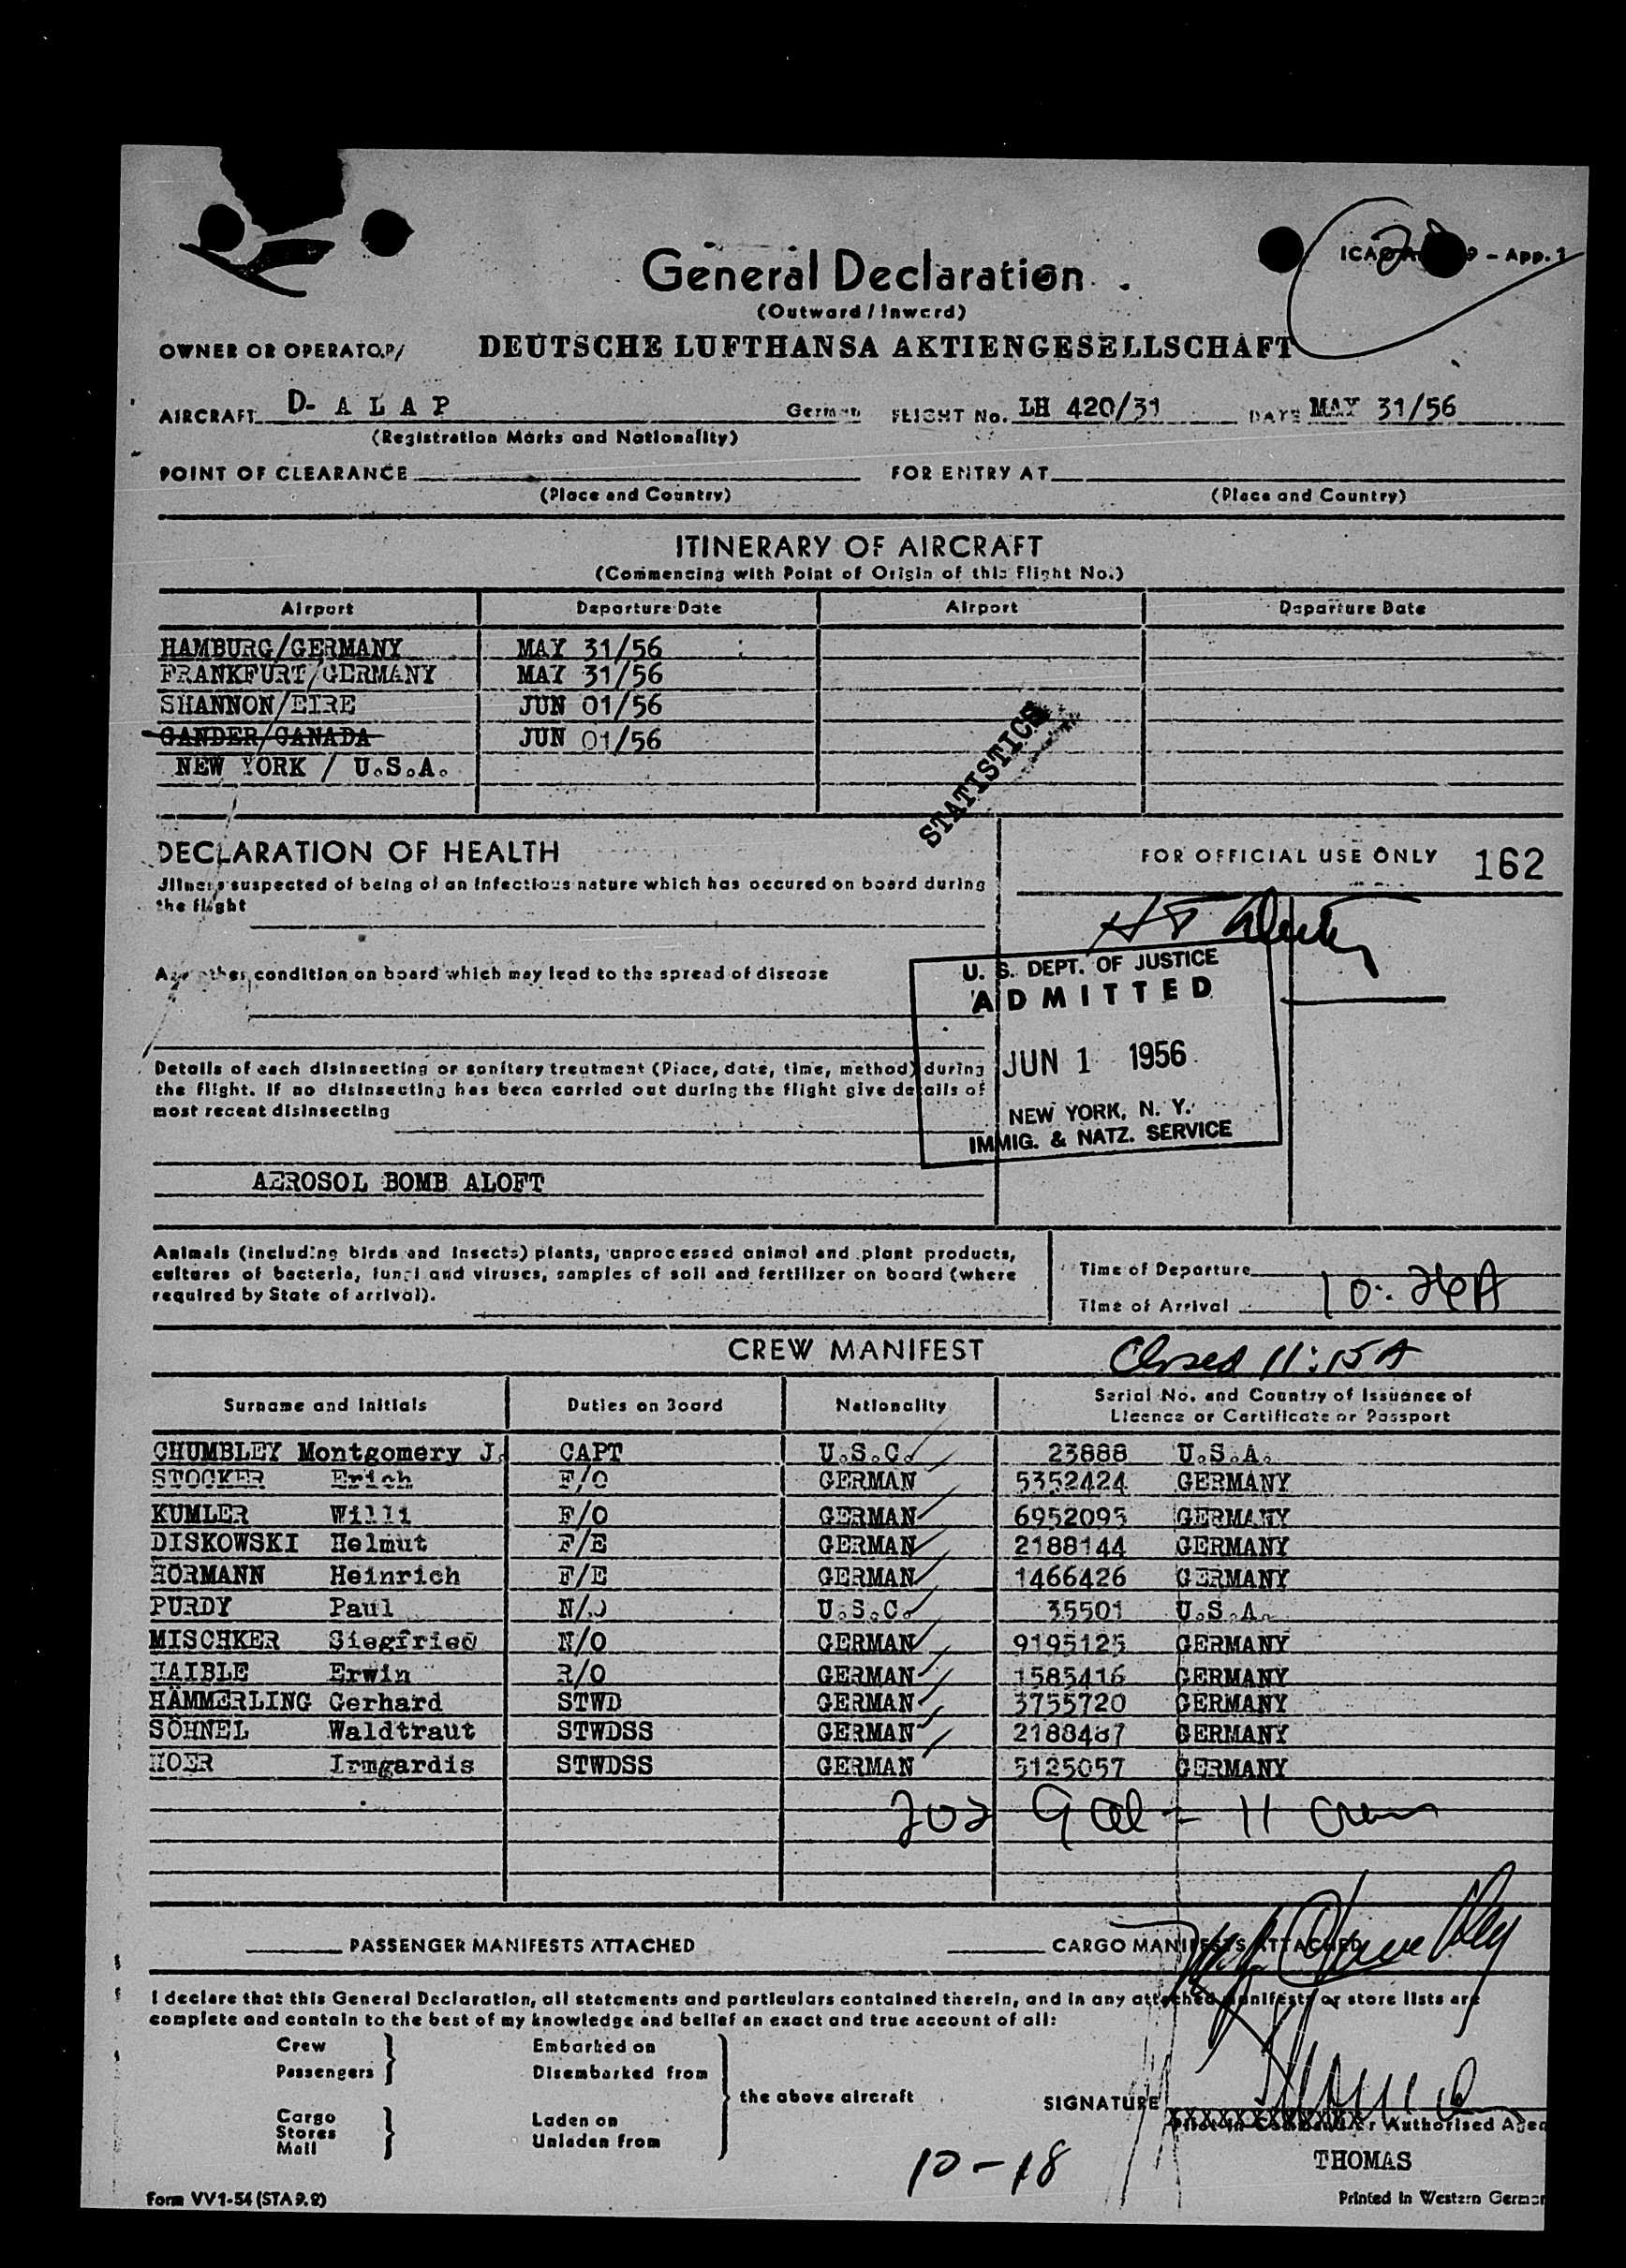 General Declaration
(Outward / Inward)
ICAO 9 - App. 1
OWNER OR OPERATOR/ DEUTSCHE LUFTHANSA AKTIENGESELLSCHAFT
AIRCRAFT D- A L A P German FLIGHT No. LH 420/31 DATE MAY 31/56
(Registration Marks and Nationality)
POINT OF CLEARANCE FOR ENTRY AT
(Place and Country) (Place and Country)
ITINERARY OF AIRCRAFT
(Commencing with Point of Origin of this Flight No.)
Airport Departure Date Airport Departure Date
HAMBURG/GERMANY MAY 31/56
FRANKFURT/GERMANY MAY 31/56
SHANNON/EIRE JUN 01/56
GANDER/CANADA JUN 01/56
NEW YORK / U.S.A.
STATISTICS
DECLARATION OF HEALTH
FOR OFFICIAL USE ONLY 162
Jllness suspected of being of an infectious nature which has occured on board during
the flight
Any other condition on board which may lead to the spread of disease
U. S. DEPT. OF JUSTICE
ADMITTED
JUN 1 1956
NEW YORK, N. Y.
IMMIG. & NATZ. SERVICE
Details of each disinsecting or sanitary treatment (Place, date, time, method) during
the flight. If no disinsecting has been carried out during the flight give details of
most recent disinsecting
AEROSOL BOMB ALOFT
Animals (including birds and insects) plants, unprocessed animal and plant products,
cultures of bacteria, fungi and viruses, samples of soil and fertilizer on board (where
required by State of arrival).
Time of Departure
Time of Arrival 10:26A
CREW MANIFEST
Closed 11:15A
Surname and Initials Duties on Board Nationality Serial No. and Country of Issuance of
Licence or Certificate or Passport
CHUMBLEY Montgomery J. CAPT U.S.C. 23888 U.S.A.
STOCKER Erich F/O GERMAN 5352424 GERMANY
KUMLER Willi F/O GERMAN 6952093 GERMANY
DISKOWSKI Helmut F/E GERMAN 2188144 GERMANY
HÖRMANN Heinrich F/E GERMAN 1466426 GERMANY
PURDY Paul N/O U.S.C. 35501 U.S.A.
MISCHKER Siegfried N/O GERMAN 9195125 GERMANY
HAIBLE Erwin R/O GERMAN 1585416 GERMANY
HÄMMERLING Gerhard STWD GERMAN 3755720 GERMANY
SÖHNEL Waldtraut STWDSS GERMAN 2188487 GERMANY
HOER Irmgardis STWDSS GERMAN 5125057 GERMANY
202 Gal - 11 Crew
PASSENGER MANIFESTS ATTACHED CARGO MANIFESTS ATTACHED
I declare that this General Declaration, all statements and particulars contained therein, and in any attached manifests or store lists are
complete and contain to the best of my knowledge and belief an exact and true account of all:
Crew Embarked on
Passengers Disembarked from
the above aircraft
Cargo Laden on
Stores Unladen from
Mail
SIGNATURE
Authorised Agen
THOMAS
10-18
Form VV1-54 (STA 9.2)
Printed in Western German